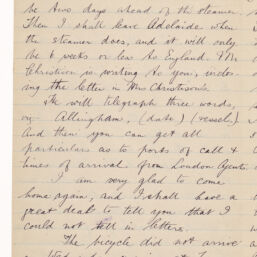 be two days ahead of the steamer.
Then I shall leave Adelaide when
the steamer does, and it will only
be 6 weeks or less to England. Mr
Christison is writing to you, inclos-
ing the letter in Mrs Christison's.
He will telegraph three words,
Allingham, (date) (vessel).
And then you can get all
particulars as to ports of call &
times of arrival from London Agents.
I am very glad to come
home again, and I shall have a
great deal to tell you that I
could not tell in letters.
The bicycle did not arrive